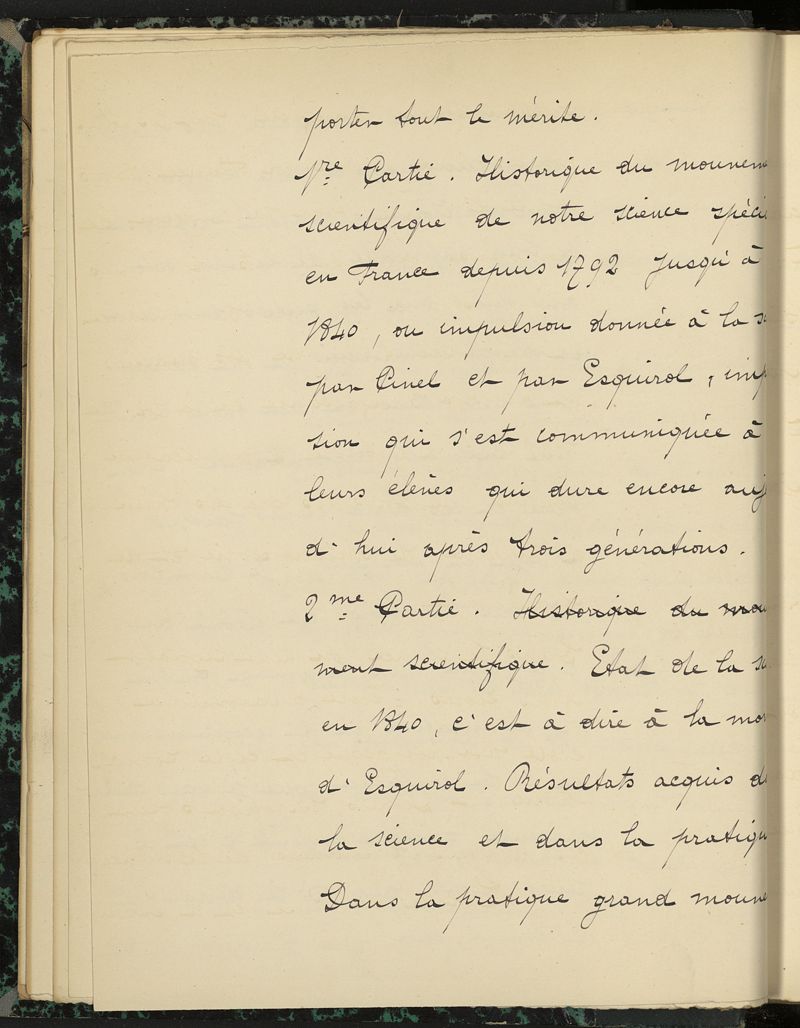 porter tout le mérite.
1re Partie. Historique du mouvem
scientifique de notre science spéci
en France depuis 1792 jusqu'à
1840, ou impulsion donnée à la s
par Pinel et par Esquirol, imp
sion qui s'est communiquée à
leurs élèves qui dure encore auj
d'hui après trois générations.
2me Partie. Historique du mou
ment scientifique. Etat de la s
en 1840, c'est à dire à la mor
d'Esquirol. Résultats acquis d
la science et dans la pratiqu
Dans la pratique grand mouve